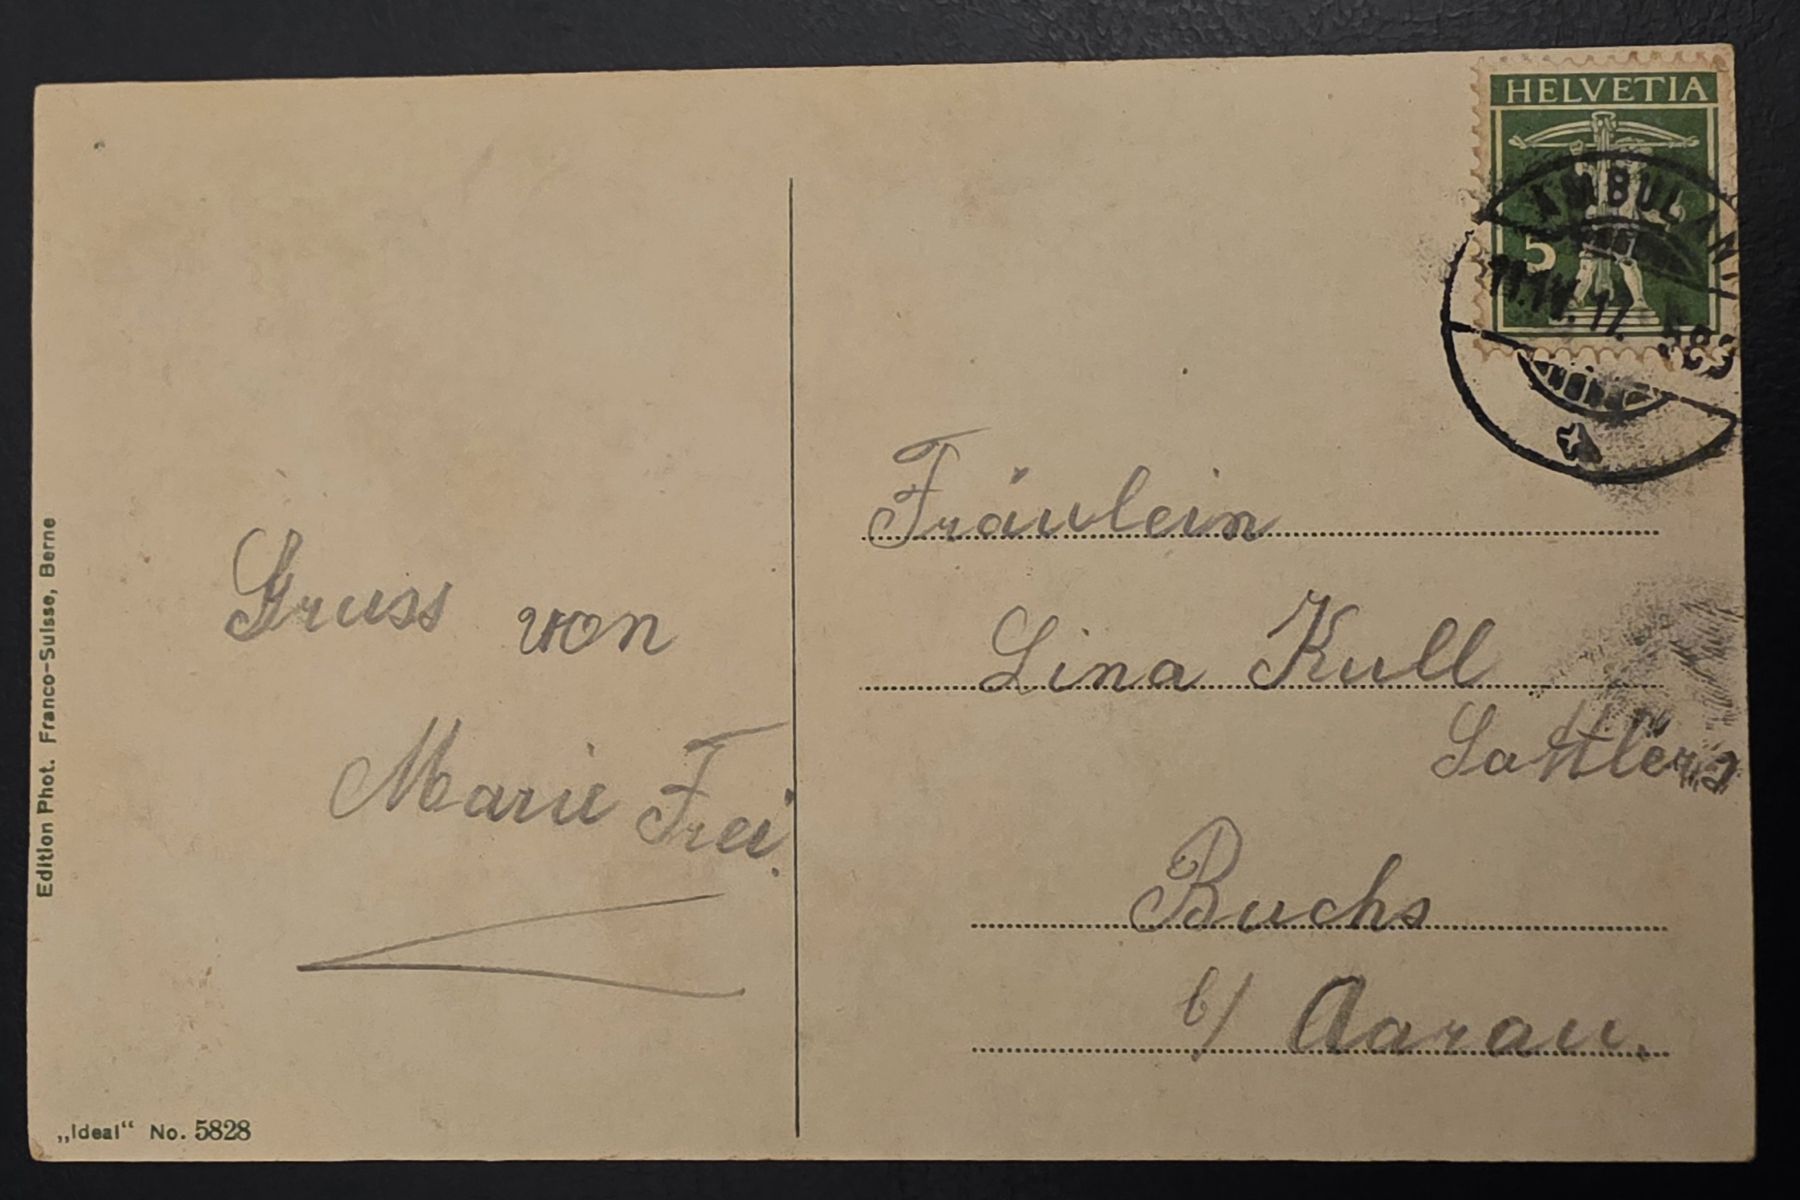 HELVETIA
5
AMBULANT
Gruss von
Marie Frei.
Fräulein
Lina Kull
Sattlers
Buchs
b/ Aarau.
Edition Phot. Franco-Suisse, Berne
„Ideal“ No. 5828